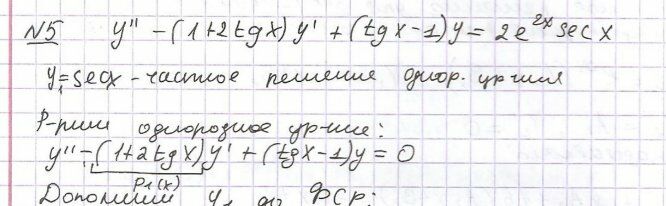 №5 y'' - (1+2tgx) y' + (tgx-1)y = 2e^{2x} secx
y₁=secx - частное решение однор. ур-ния
Р-рим однородное ур-ние:
y'' - (1+2tgx)y' + (tgx-1)y = 0
p₁(x)
Дополним y₁ до ФСР: